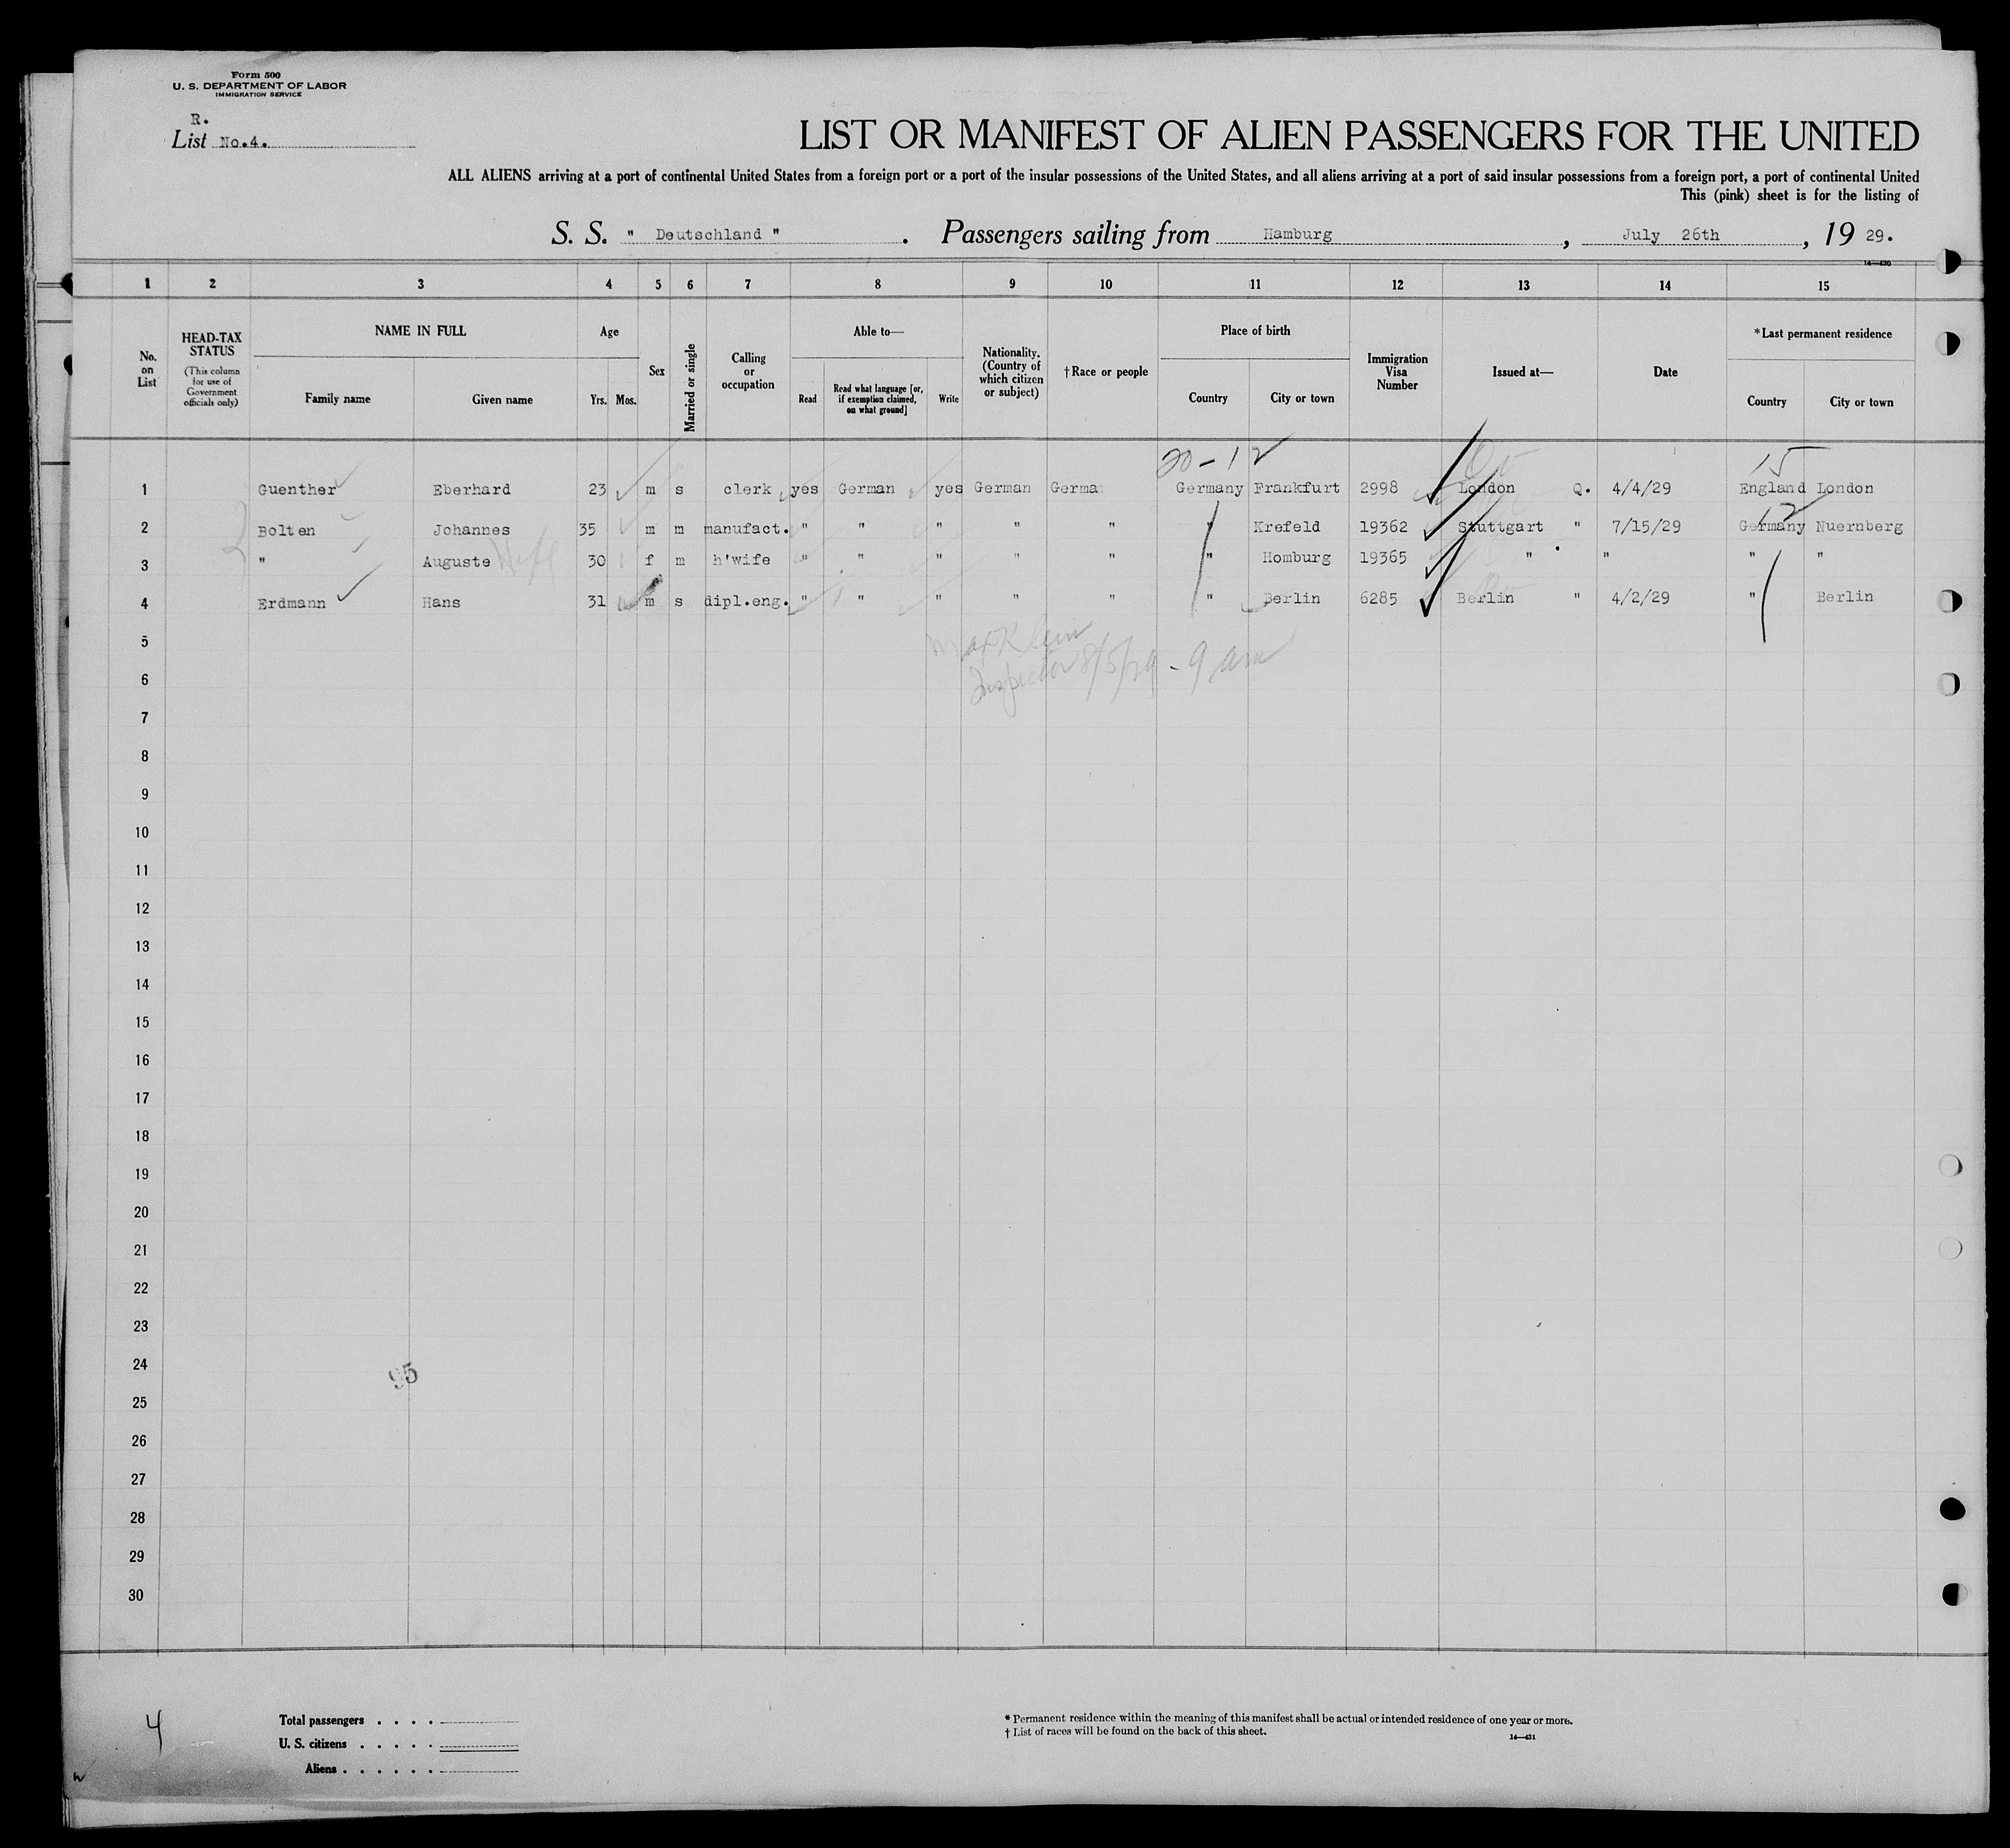 Form 500
U. S. DEPARTMENT OF LABOR
IMMIGRATION SERVICE
R.
List No.4.
LIST OR MANIFEST OF ALIEN PASSENGERS FOR THE UNITED
ALL ALIENS arriving at a port of continental United States from a foreign port or a port of the insular possessions of the United States, and all aliens arriving at a port of said insular possessions from a foreign port, a port of continental United
This (pink) sheet is for the listing of
S. S. " Deutschland " . Passengers sailing from Hamburg , July 26th , 19 29.
14—430
1 2 3 4 5 6 7 8 9 10 11 12 13 14 15
No. on List
HEAD-TAX STATUS
(This column for use of Government officials only)
NAME IN FULL
Family name Given name
Age
Yrs. Mos.
Sex
Married or single
Calling or occupation
Able to—
Read
Read what language [or, if exemption claimed, on what ground]
Write
Nationality. (Country of which citizen or subject)
†Race or people
Place of birth
Country City or town
Immigration Visa Number
Issued at—
Date
*Last permanent residence
Country City or town
20-12 15
1 Guenther Eberhard 23 m s clerk yes German yes German Germa Germany Frankfurt 2998 London Q. 4/4/29 England London
12
2 Bolten Johannes 35 m m manufact. " " " " " " Krefeld 19362 Stuttgart " 7/15/29 Germany Nuernberg
3 " Auguste Wife 30 f m h'wife " " " " " " Homburg 19365 " " " " "
4 Erdmann Hans 31 m s dipl.eng. " " " " " " Berlin 6285 Berlin " 4/2/29 " Berlin
5 Max Klein
6 Inspector 8/5/29 - 9 am
7
8
9
10
11
12
13
14
15
16
17
18
19
20
21
22
23
24
95
25
26
27
28
29
30
4
Total passengers . . . .
U. S. citizens . . . . .
Aliens . . . . . .
* Permanent residence within the meaning of this manifest shall be actual or intended residence of one year or more.
† List of races will be found on the back of this sheet.
14—431